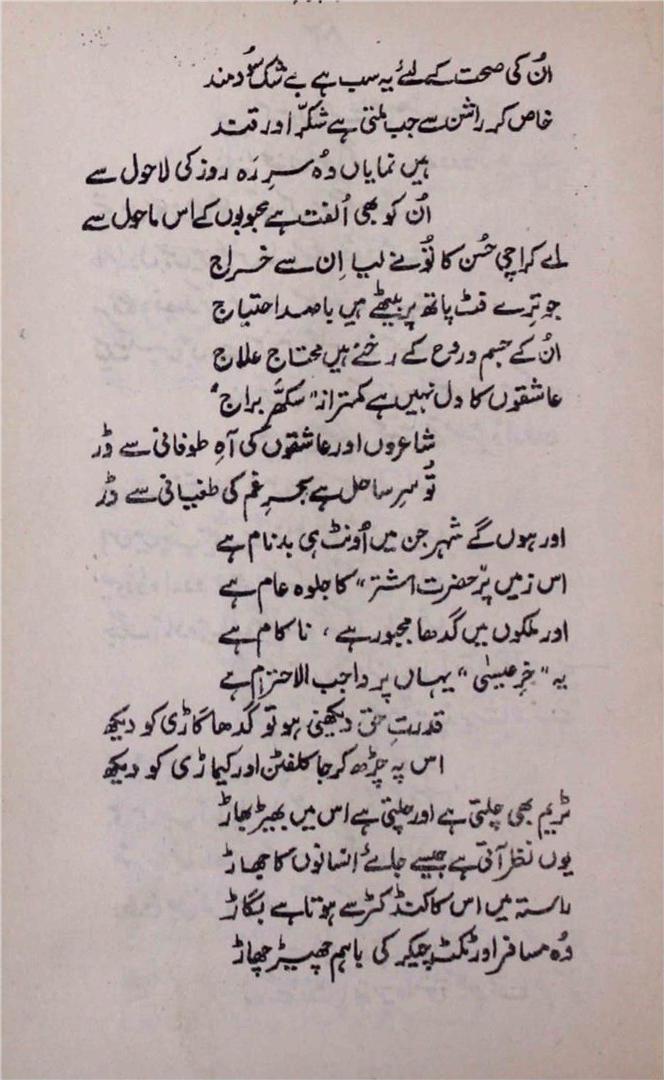 اُن کی صحت کے لئے یہ سب ہے بے شک سُود مند
خاص کر راشن سے جب ملتی ہے شکّر اور قند
ہیں نمایاں وُہ سرِ رَہ روز کی لاحول سے
اُن کو بھی اُلفت ہے محبوبوں کے اس ماحول سے
اے کراچی حُسن کا تُونے لیا اِن سے خراج
جو ترے فٹ پاتھ پر بیٹھے ہیں باصد احتیاج
اُن کے جسم و روح کے رخنے ہیں محتاج علاج
عاشقوں کا دل نہیں ہے کمتر از "سکھّر براج"
شاعروں اور عاشقوں کی آہِ طوفانی سے ڈر
تُو سرِ ساحل ہے بحرِ غم کی طغیانی سے ڈر
اور ہوں گے شہر جن میں اُونٹ ہی بدنام ہے
اس زمیں پر "حضرت اشتر" کا جلوہ عام ہے
اور ملکوں میں گدھا مجبور ہے ، ناکام ہے
یہ "خرِ عیسٰی" یہاں پر واجب الاحترام ہے
قدرتِ حق دیکھنی ہو تو گدھا گاڑی کو دیکھ
اس پہ چڑھ کر جا کلفٹن اور کیماڑی کو دیکھ
ٹریم بھی چلتی ہے اور چلتی ہے اس میں بھیڑ بھاڑ
یوں نظر آتی ہے جیسے جائے انسانوں کا جھاڑ
راستہ میں اس کا کنڈکٹر سے ہوتا ہے بگاڑ
وُہ مسافر اور ٹکٹ چیکر کی باہم چھیڑ چھاڑ